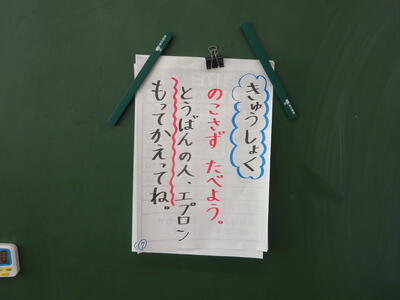 きゅうしょく
のこさず たべよう。
とうばんの人、エプロン
もってかえってね。